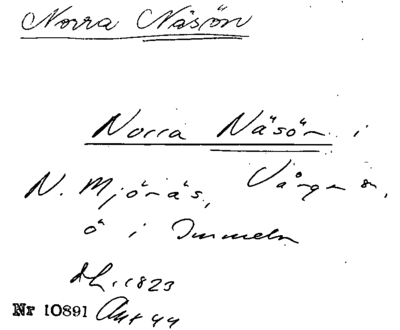 Norra Näsön
Norra Näsön i
N. Mjönäs, Vånga sn,
ö i Immeln
dh. 1823
Nr 10891 Ant 44